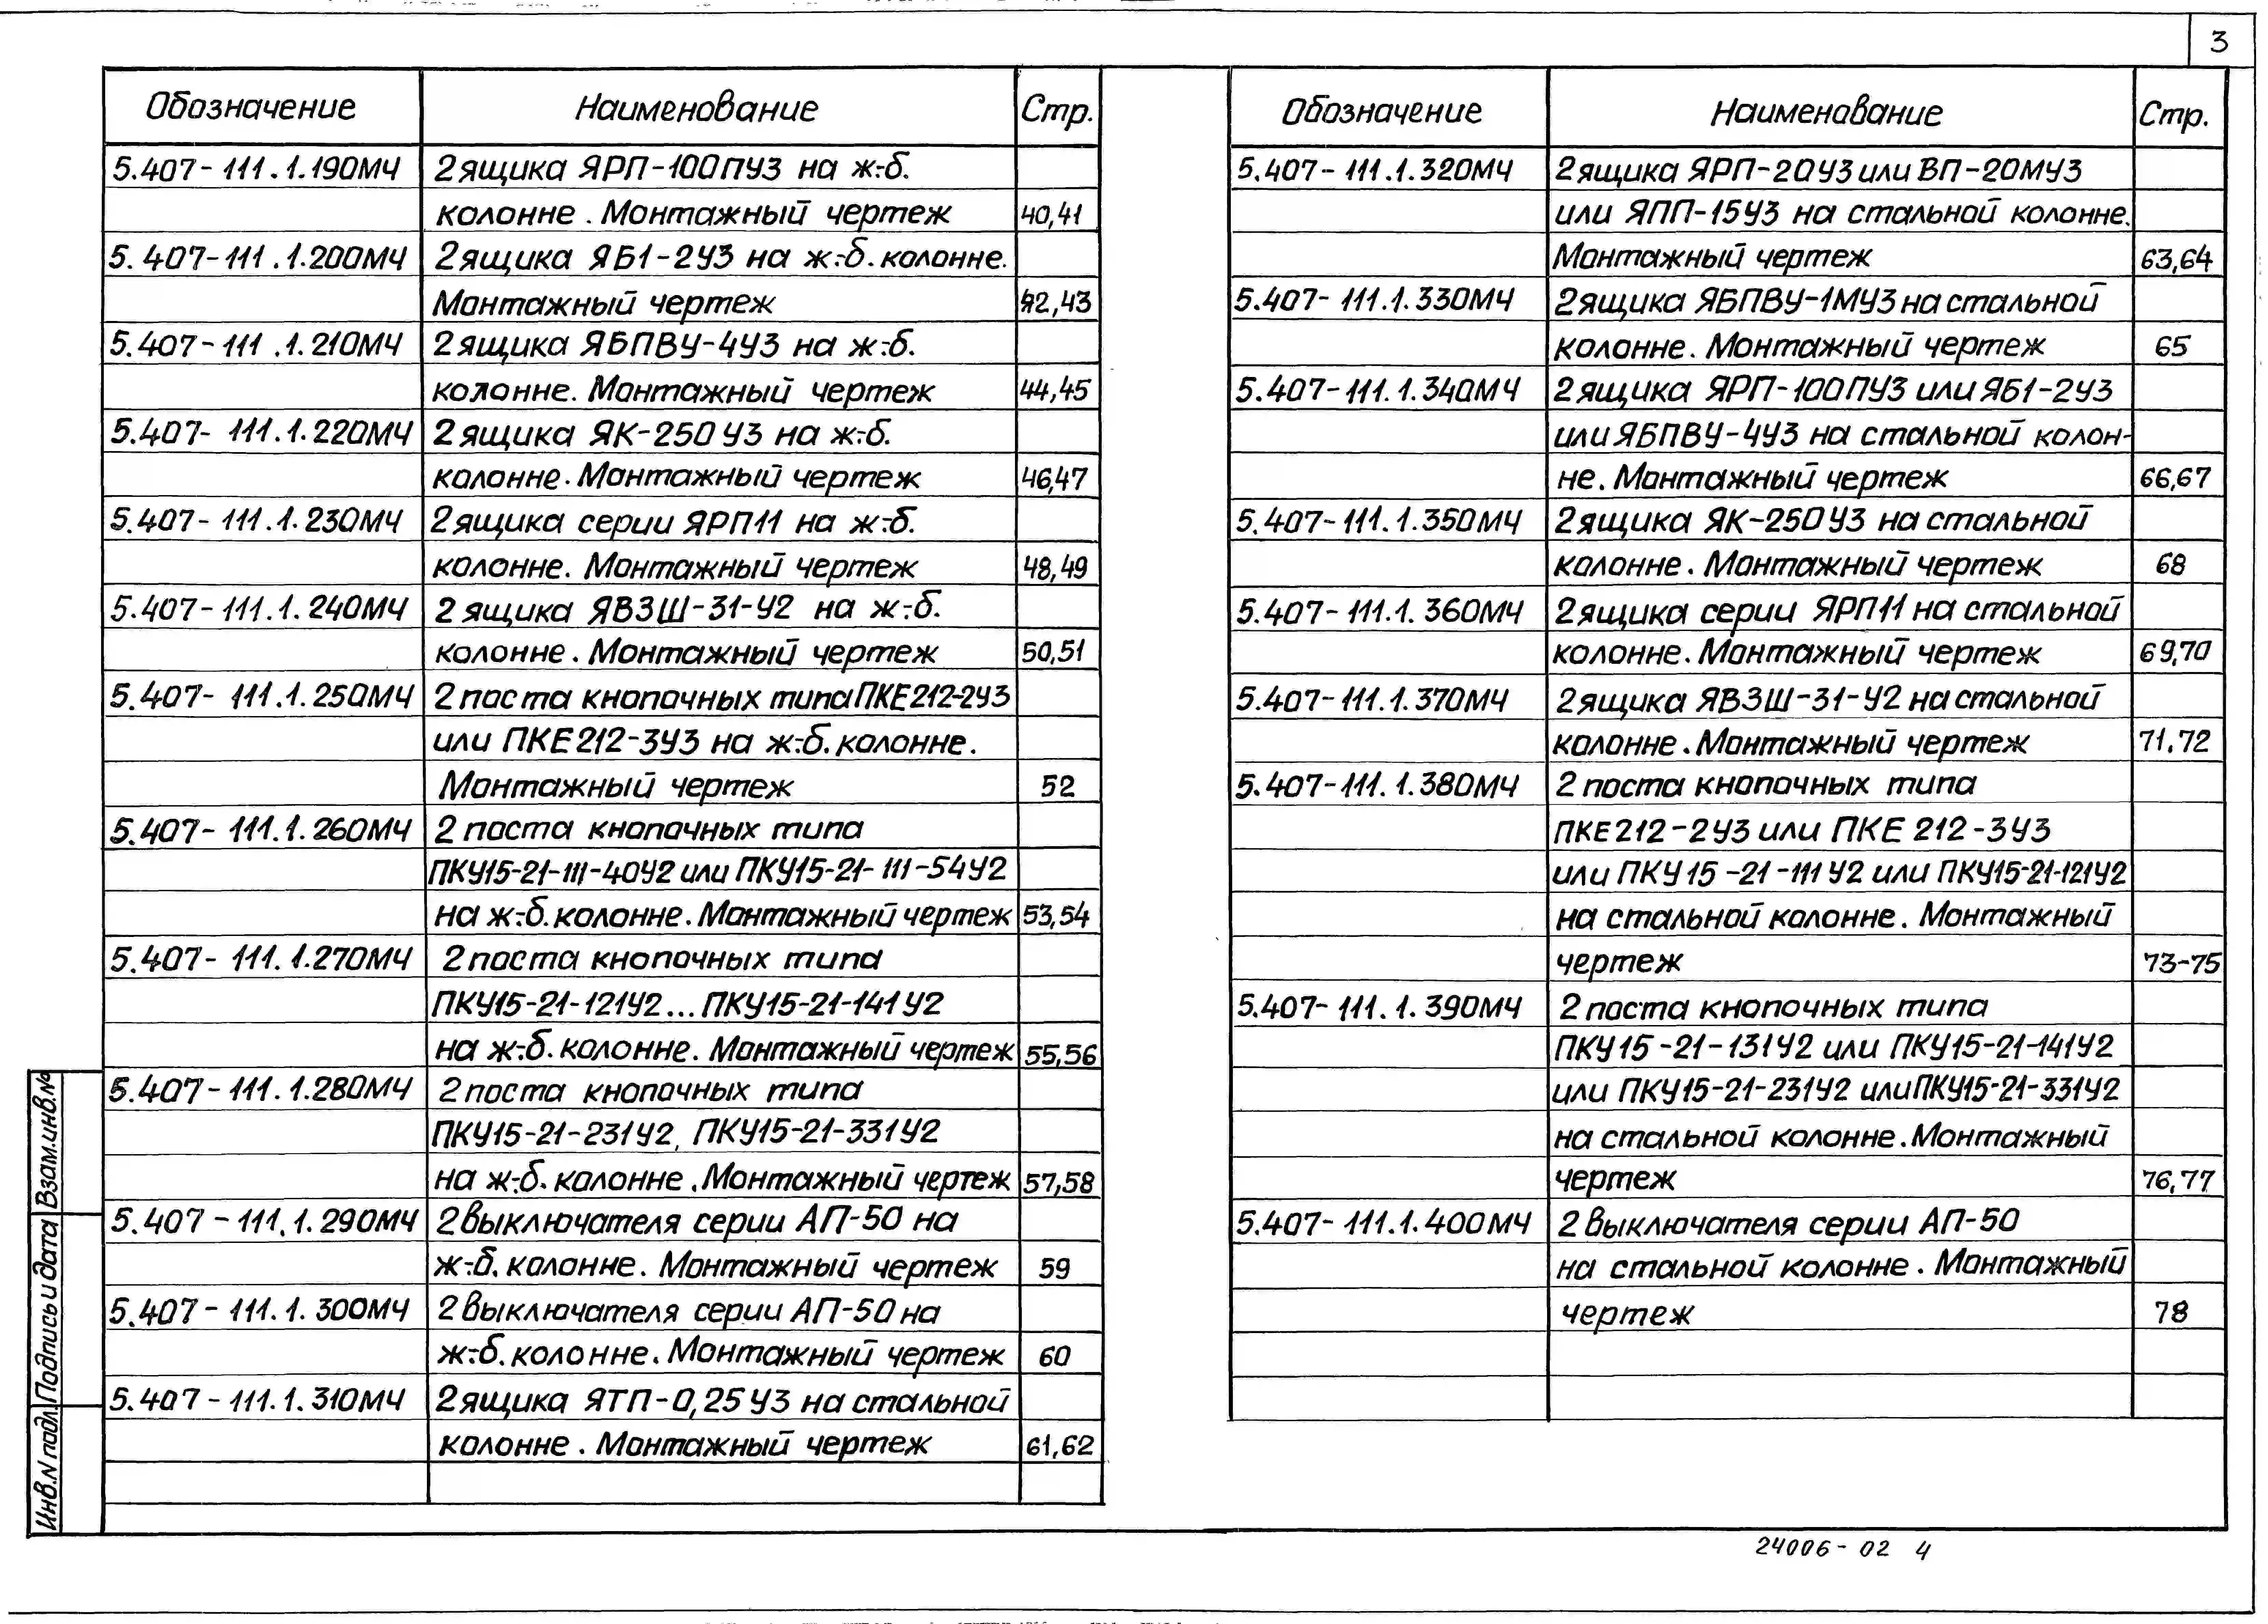 3
Обозначение Наименование Стр.
5.407-111.1.190МЧ 2 ящика ЯРП-100ПУ3 на ж.-б.
колонне. Монтажный чертеж 40,41
5.407-111.1.200МЧ 2 ящика ЯБ1-2У3 на ж.-б. колонне.
Монтажный чертеж 42,43
5.407-111.1.210МЧ 2 ящика ЯБПВУ-4У3 на ж.-б.
колонне. Монтажный чертеж 44,45
5.407-111.1.220МЧ 2 ящика ЯК-250У3 на ж.-б.
колонне. Монтажный чертеж 46,47
5.407-111.1.230МЧ 2 ящика серии ЯРП11 на ж.-б.
колонне. Монтажный чертеж 48,49
5.407-111.1.240МЧ 2 ящика ЯВЗШ-31-У2 на ж.-б.
колонне. Монтажный чертеж 50,51
5.407-111.1.250МЧ 2 поста кнопочных типа ПКЕ212-2У3
или ПКЕ212-3У3 на ж.-б. колонне.
Монтажный чертеж 52
5.407-111.1.260МЧ 2 поста кнопочных типа
ПКУ15-21-111-40У2 или ПКУ15-21-111-54У2
на ж.-б. колонне. Монтажный чертеж 53,54
5.407-111.1.270МЧ 2 поста кнопочных типа
ПКУ15-21-121У2...ПКУ15-21-141У2
на ж.-б. колонне. Монтажный чертеж 55,56
5.407-111.1.280МЧ 2 поста кнопочных типа
ПКУ15-21-231У2, ПКУ15-21-331У2
на ж.-б. колонне. Монтажный чертеж 57,58
5.407-111.1.290МЧ 2 выключателя серии АП-50 на
ж.-б. колонне. Монтажный чертеж 59
5.407-111.1.300МЧ 2 выключателя серии АП-50 на
ж.-б. колонне. Монтажный чертеж 60
5.407-111.1.310МЧ 2 ящика ЯТП-0,25У3 на стальной
колонне. Монтажный чертеж 61,62
Обозначение Наименование Стр.
5.407-111.1.320МЧ 2 ящика ЯРП-20У3 или ВП-20МУ3
или ЯПП-15У3 на стальной колонне.
Монтажный чертеж 63,64
5.407-111.1.330МЧ 2 ящика ЯБПВУ-1МУ3 на стальной
колонне. Монтажный чертеж 65
5.407-111.1.340МЧ 2 ящика ЯРП-100ПУ3 или ЯБ1-2У3
или ЯБПВУ-4У3 на стальной колон-
не. Монтажный чертеж 66,67
5.407-111.1.350МЧ 2 ящика ЯК-250У3 на стальной
колонне. Монтажный чертеж 68
5.407-111.1.360МЧ 2 ящика серии ЯРП11 на стальной
колонне. Монтажный чертеж 69,70
5.407-111.1.370МЧ 2 ящика ЯВЗШ-31-У2 на стальной
колонне. Монтажный чертеж 71,72
5.407-111.1.380МЧ 2 поста кнопочных типа
ПКЕ212-2У3 или ПКЕ 212-3У3
или ПКУ15-21-111У2 или ПКУ15-21-121У2
на стальной колонне. Монтажный
чертеж 73-75
5.407-111.1.390МЧ 2 поста кнопочных типа
ПКУ15-21-131У2 или ПКУ15-21-141У2
или ПКУ15-21-231У2 или ПКУ15-21-331У2
на стальной колонне. Монтажный
чертеж 76,77
5.407-111.1.400МЧ 2 выключателя серии АП-50
на стальной колонне. Монтажный
чертеж 78
Взам.инв.№
Подпись и дата
Инв.N подл.
24006-02 4